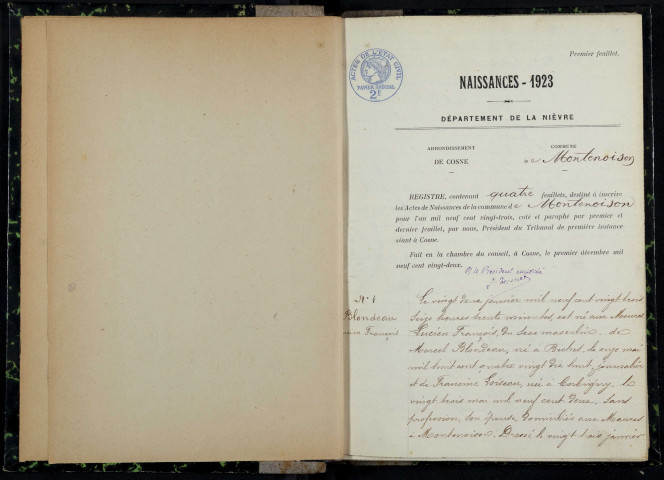 Premier feuillet.
ACTES DE L'ÉTAT CIVIL
PAPIER SPÉCIAL
2F
NAISSANCES - 1923
DÉPARTEMENT DE LA NIÈVRE
ARRONDISSEMENT
DE COSNE
COMMUNE
de Montenoison
REGISTRE, contenant quatre feuillets, destiné à inscrire
les Actes de Naissances de la commune de Montenoison
pour l'an mil neuf cent vingt-trois, coté et paraphé par premier et
dernier feuillet, par nous, Président du Tribunal de première instance
séant à Cosne.
Fait en la chambre du conseil, à Cosne, le premier décembre mil
neuf cent vingt-deux.
Le Président
N° 1
Blondeau
Lucien François
Le vingt deux janvier mil neuf cent vingt trois
seize heures trente minutes, est né aux Maures
Lucien François, du sexe masculin de
Marcel Blondeau, né à le onze mai
mil huit cent quatre vingt dix huit, journalier
et de Francine Loiseau, née à Corbigny, le
vingt trois mai mil neuf cent deux, sans
profession, son épouse domiciliés aux Maures
à Montenoison. Dressé le vingt trois janvier